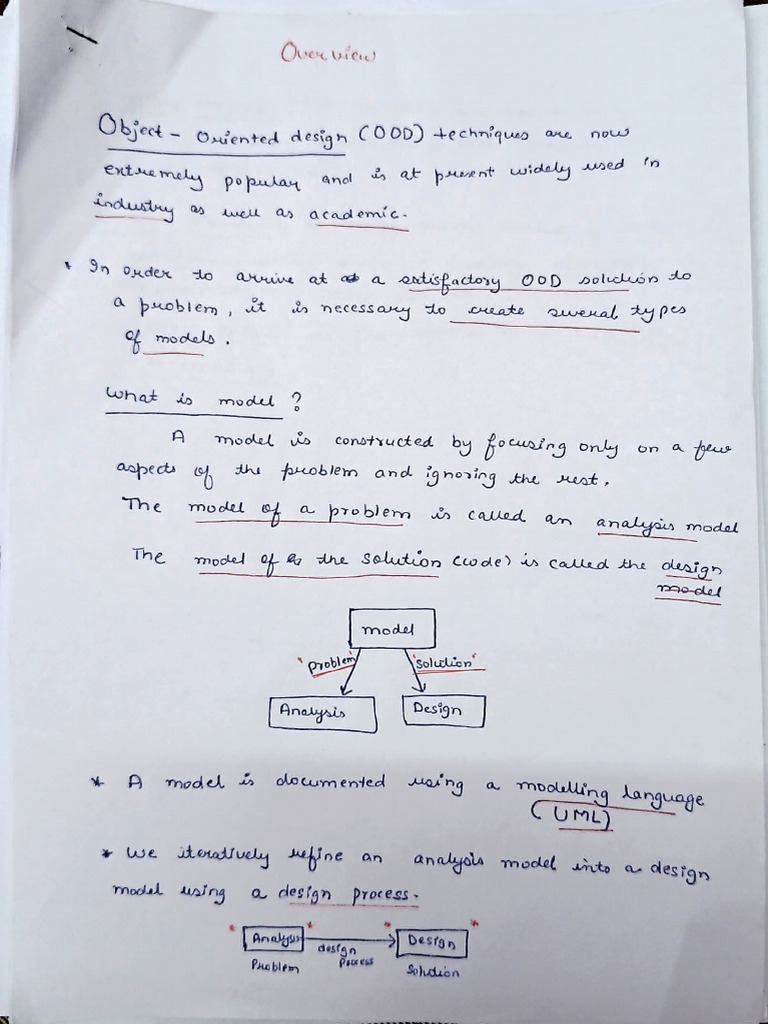 Overview
Object - oriented design (OOD) techniques are now
extremely popular and is at present widely used in
industry as well as academic.
* In order to arrive at a satisfactory OOD solution to
a problem, it is necessary to create several types
of models.
What is model?
A model is constructed by focusing only on a few
aspects of the problem and ignoring the rest.
The model of a problem is called an analysis model
The model of the solution (code) is called the design
model
model
"problem" "solution"
Analysis Design
* A model is documented using a modelling language
(UML)
* We iteratively refine an analysis model into a design
model using a design process.
* Analysis * * Design *
design
process
Problem Solution